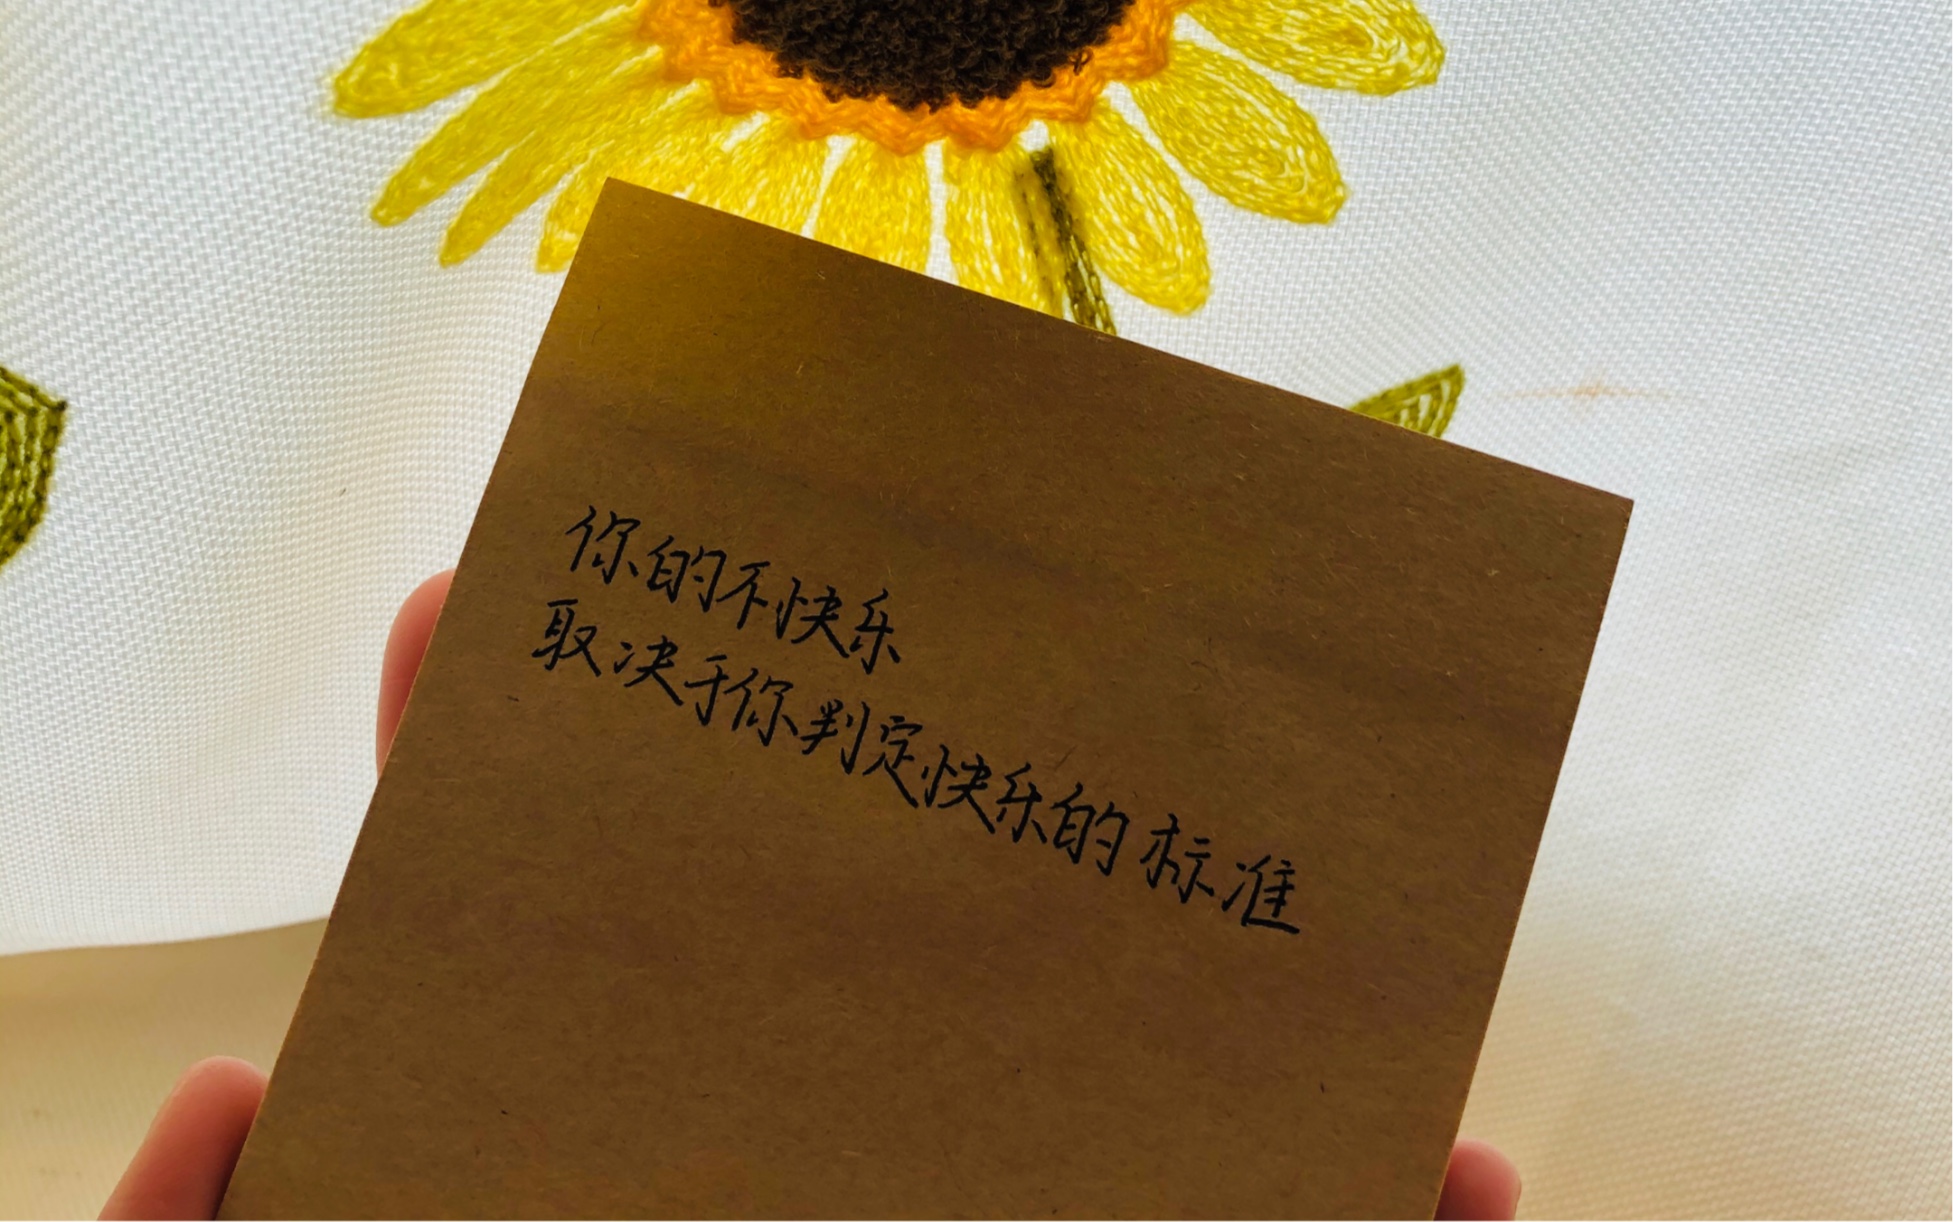 你的不快乐
取决于你判定快乐的标准